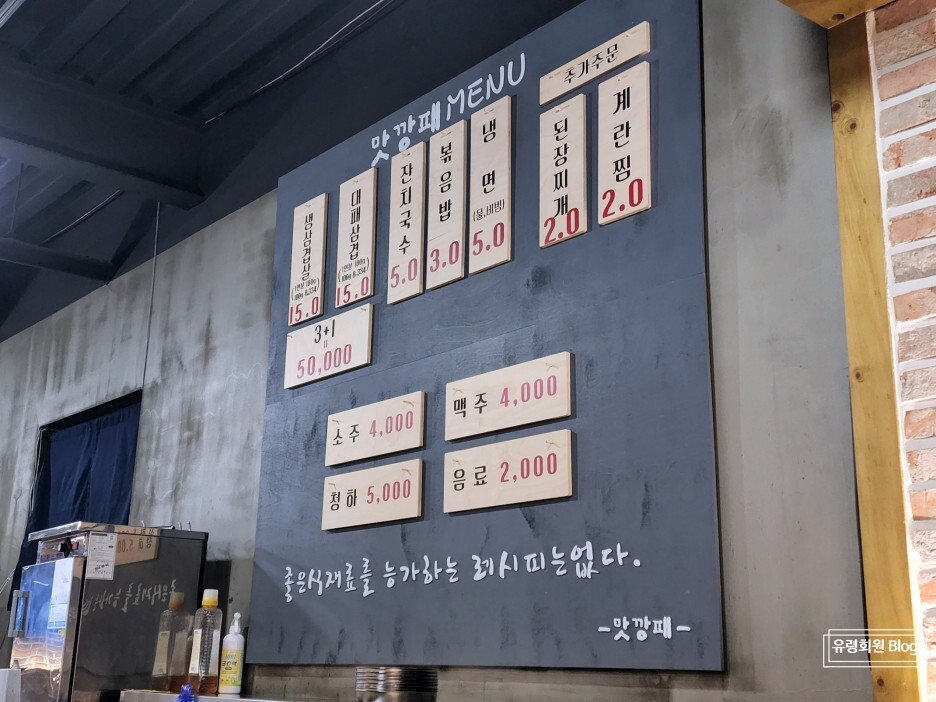 맛깡패 MENU
생삼겹살
(1인분 180g
100g 8.334)
15.0
대패삼겹
(1인분 180g
100g 8.334)
15.0
잔치국수
5.0
볶음밥
3.0
냉면
(물,비빔)
5.0
추가주문
된장찌개
2.0
계란찜
2.0
3+1
=
50,000
소주 4,000
맥주 4,000
청하 5,000
음료 2,000
좋은식재료를 능가하는 레시피는없다.
-맛깡패-
유령회원 Blog